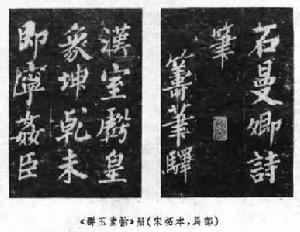 石曼卿詩
筆
籌筆驛
漢室虧皇
象坤乾未
即寧姦臣
《群玉堂帖》册(宋拓本.局部)